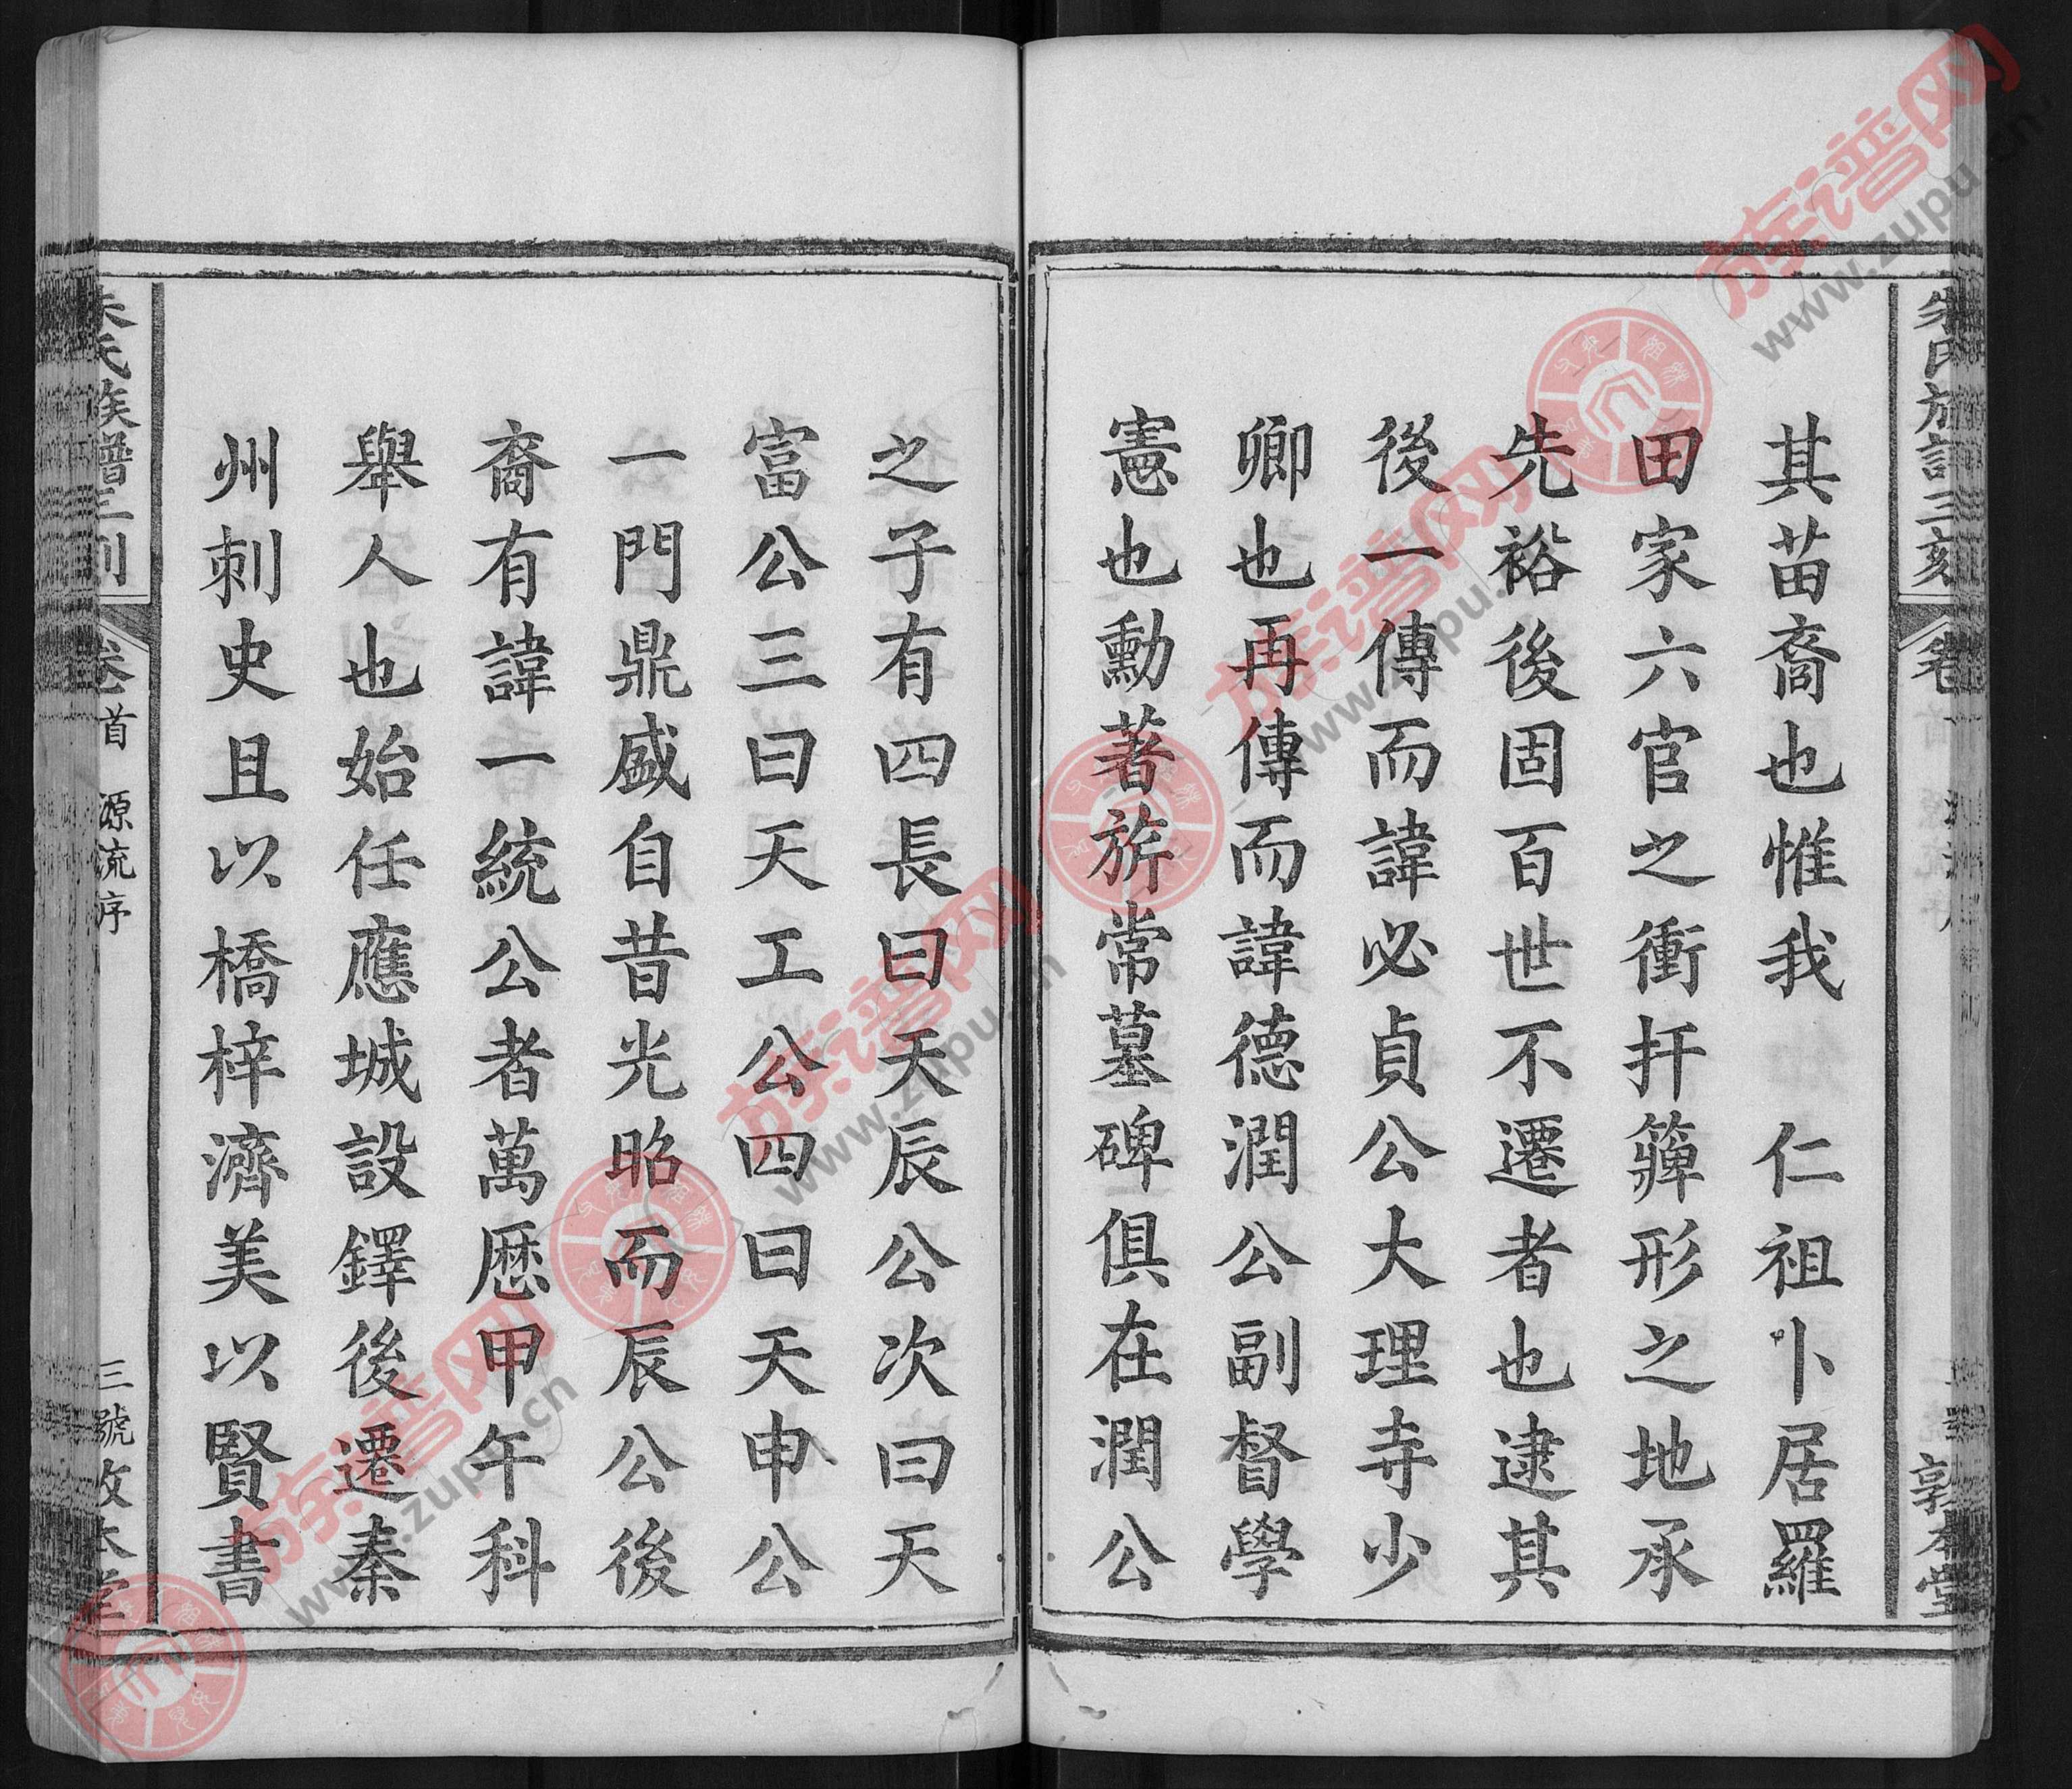 其苗裔也惟我 仁祖卜居羅
田家六官之衝扞簰形之地承
先裕後固百世不遷者也逮其
後一傳而諱必貞公大理寺少
卿也再傳而諱德潤公副督學
憲也勳著旂常墓碑俱在潤公
之子有四長曰天辰公次曰天
富公三曰天工公四曰天申公
一門鼎盛自昔光昭而辰公後
裔有諱一統公者萬厯甲午科
舉人也始任應城設鐸後遷秦
州刺史且以橋梓濟美以賢書
朱氏族譜三刻
卷首 源流序
三號
敦本堂
族谱网
www.zupu.cn
族谱网
www.zupu.cn
族谱网
www.zupu.cn
族谱网
www.zupu.cn